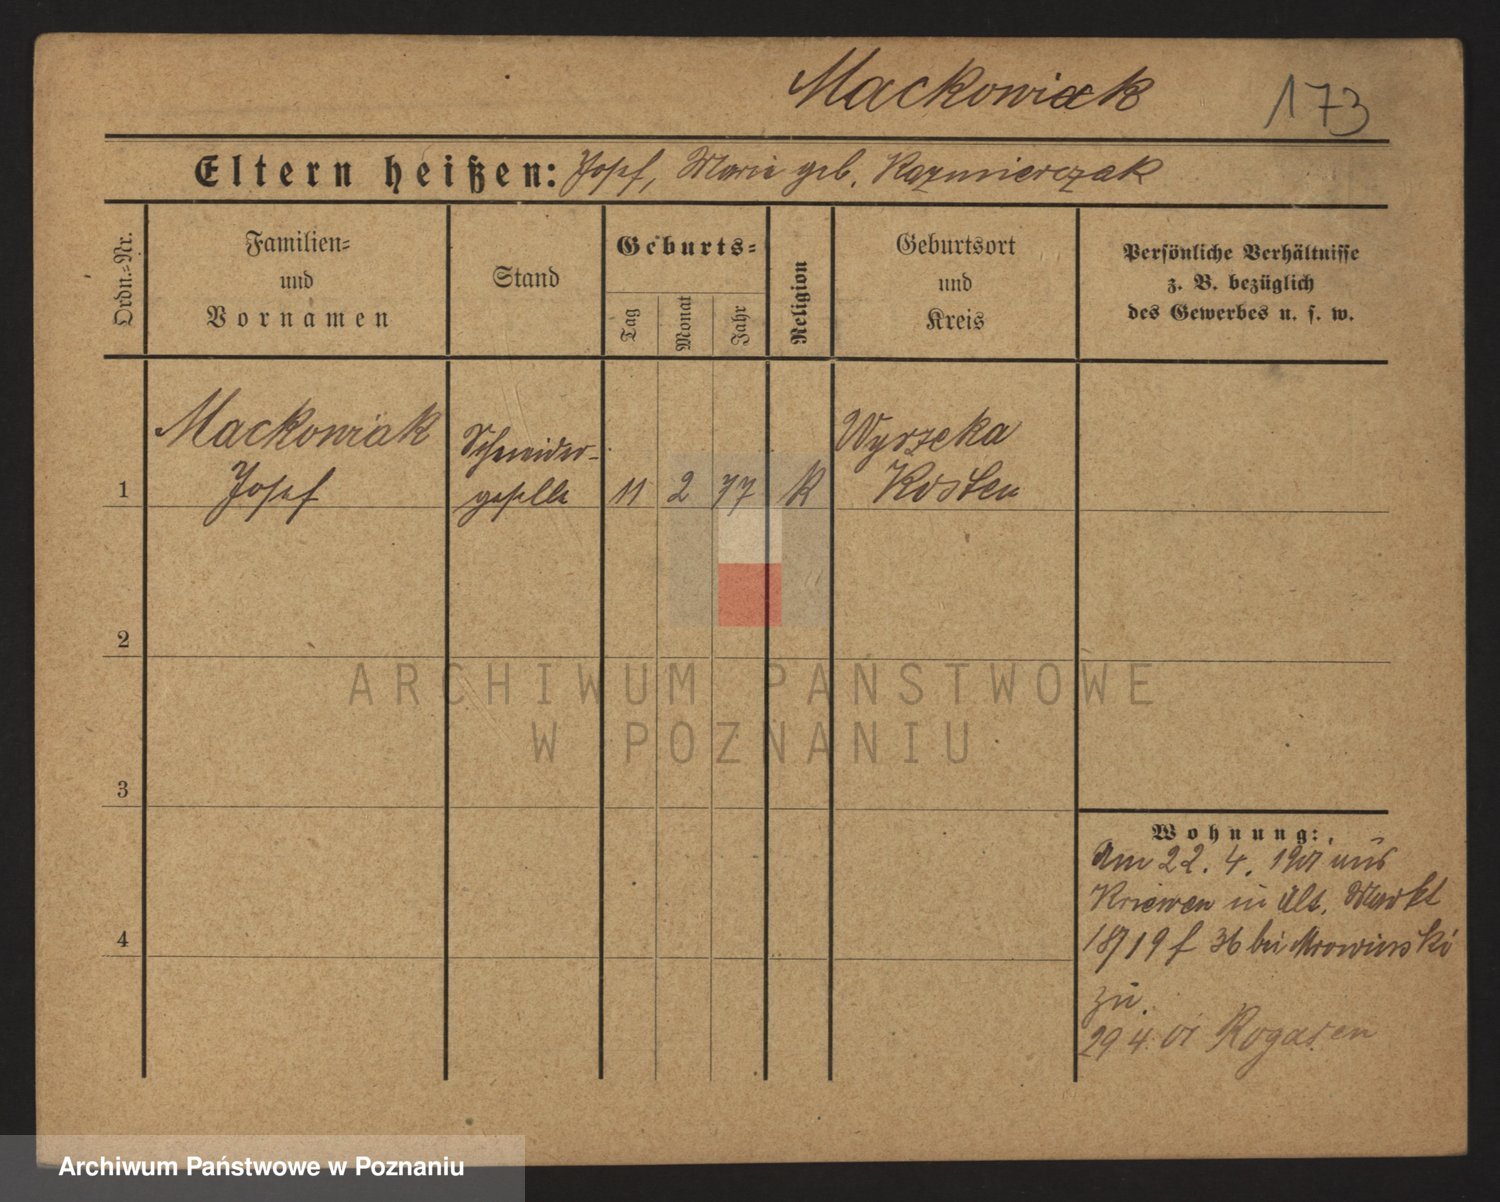 Mackowiak 173
Eltern heißen: Josef, Marie geb. Kazmierczak
Ordn.-Nr.
Familien-
und
Vornamen
Stand
Geburts-
Tag
Monat
Jahr
Religion
Geburtsort
und
Kreis
Persönliche Verhältnisse
z. B. bezüglich
des Gewerbes u. s. w.
Mackowiak
Josef
Schneider-
geselle
11 2 77 K
Wyrzeka
Kosten
1
2
3
4
Wohnung:
Am 22. 4. 1901 aus
Kriewen in Alt. Markt
18/19 f 36 bei Mrowinski
zu.
29 4 01 Rogasen
ARCHIWUM PAŃSTWOWE
W POZNANIU
Archiwum Państwowe w Poznaniu